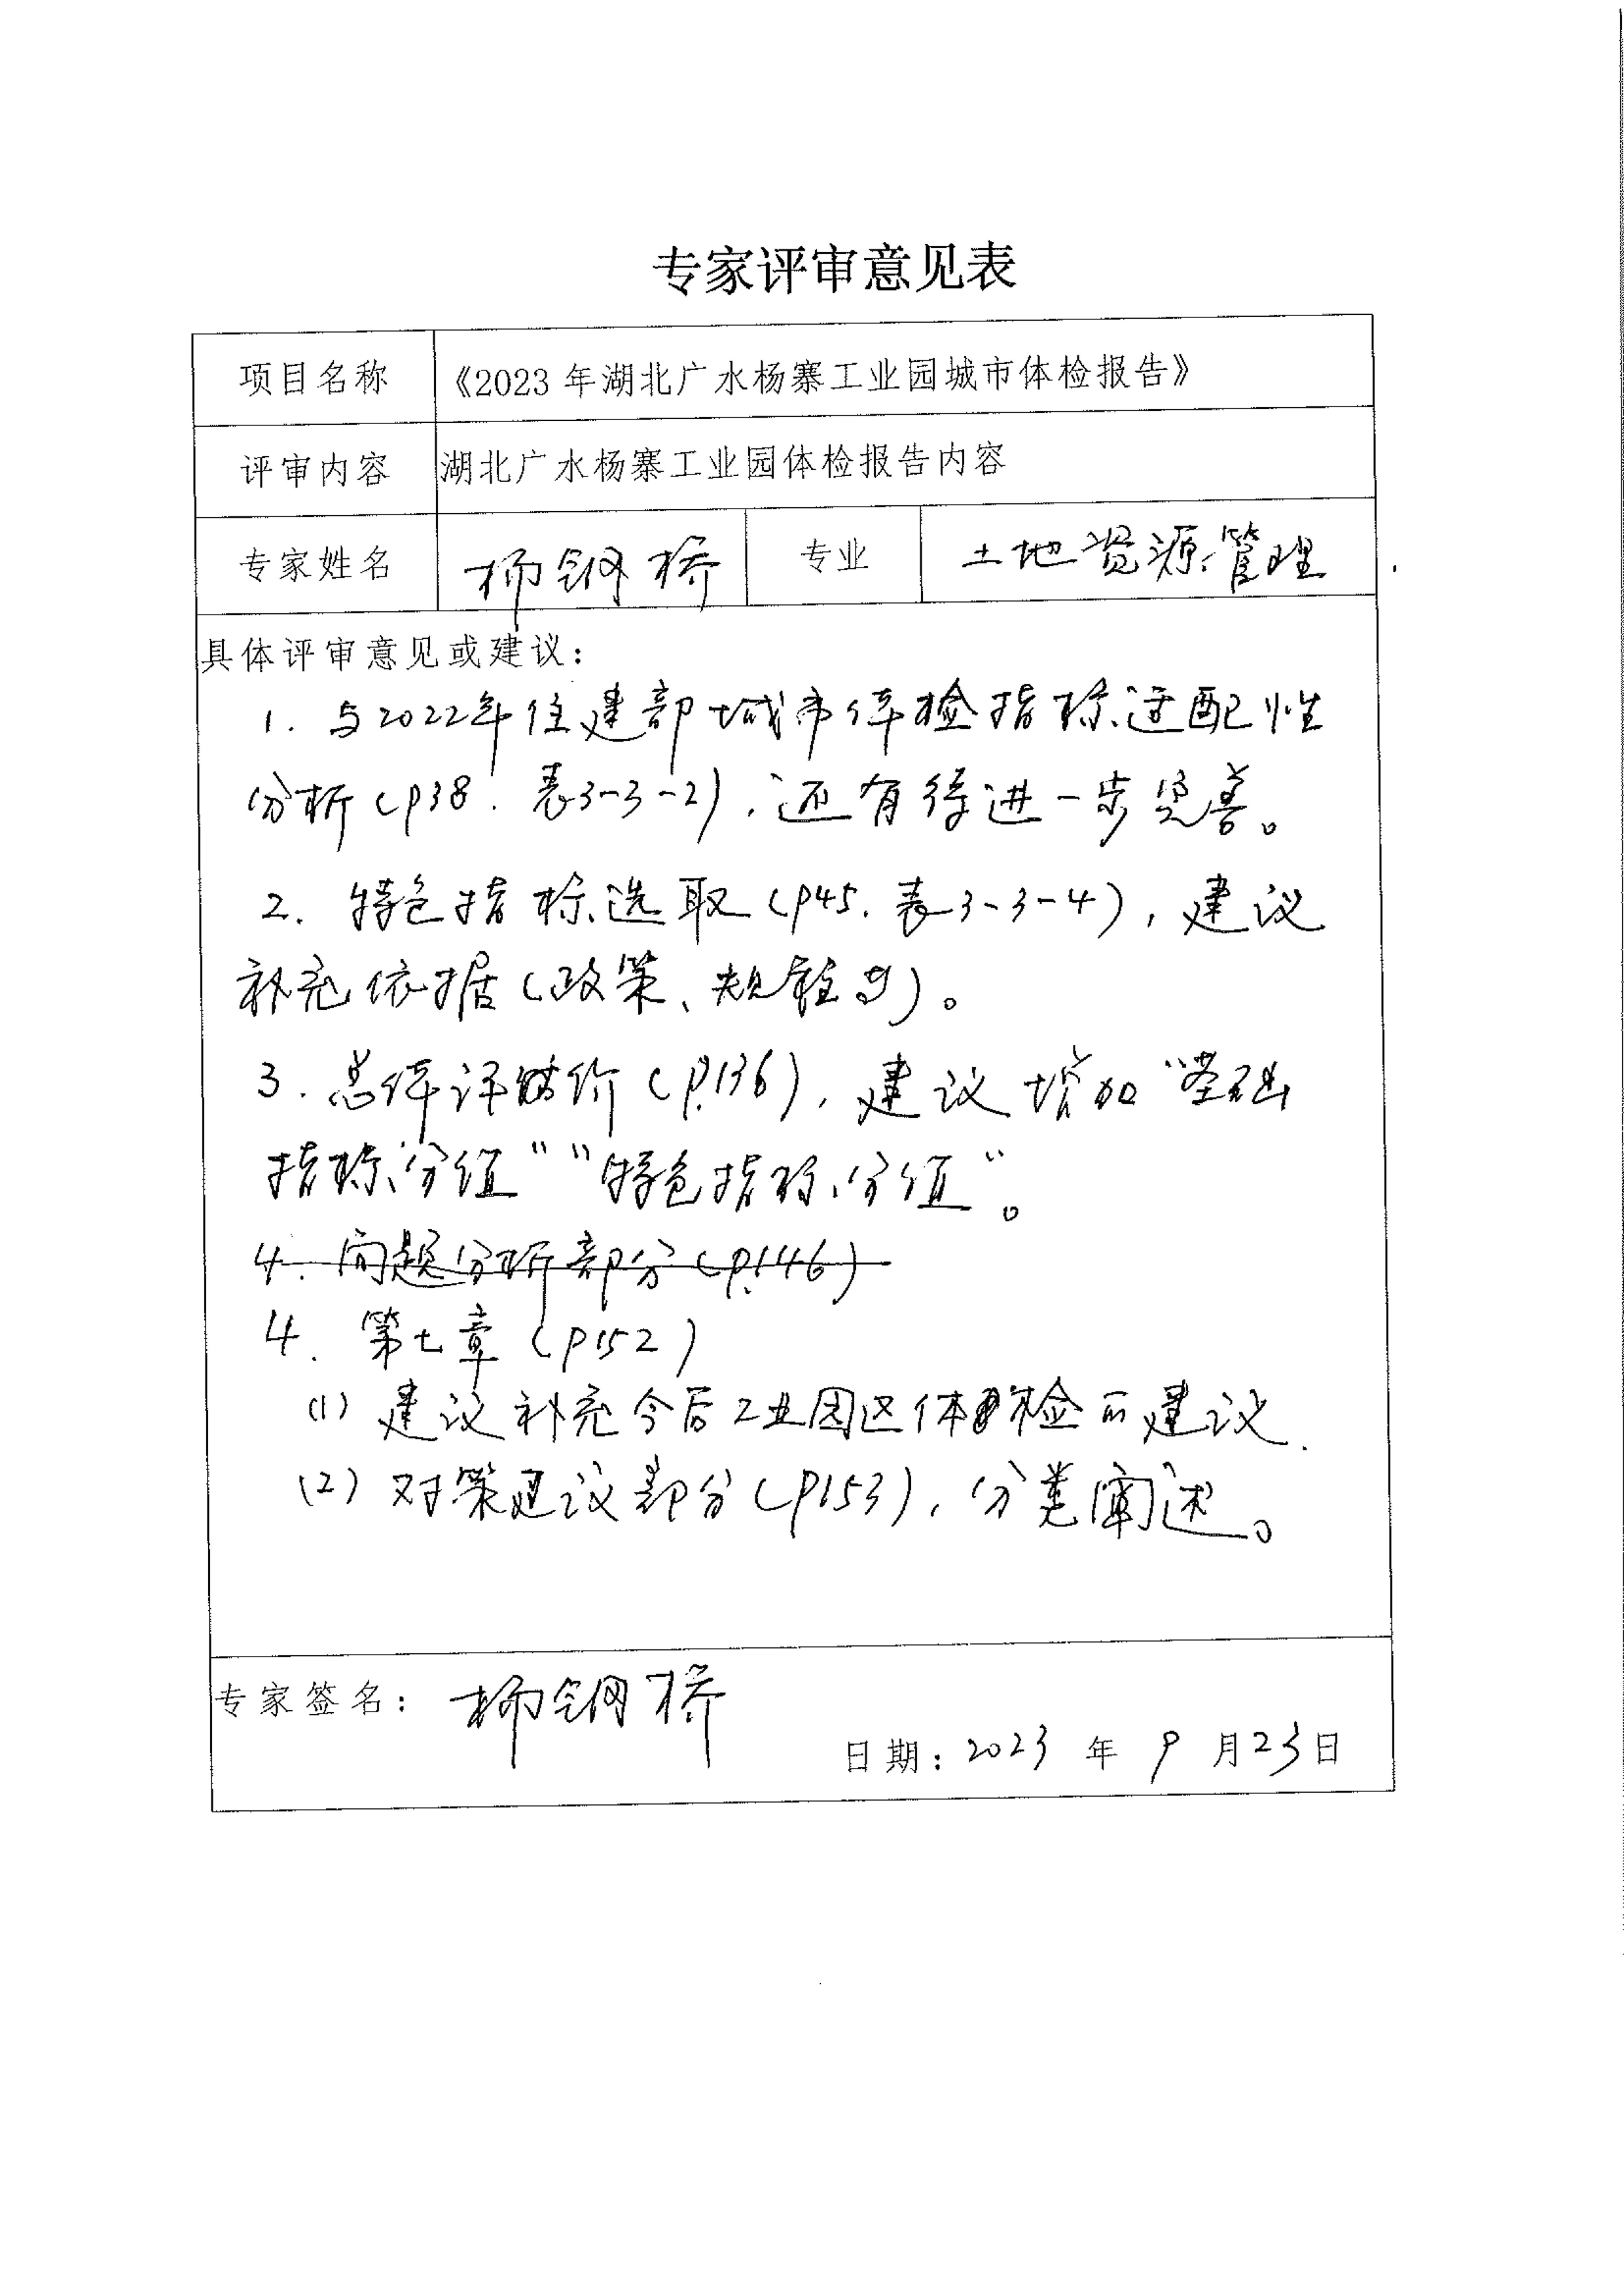 专家评审意见表
项目名称 《2023年湖北广水杨寨工业园城市体检报告》
评审内容 湖北广水杨寨工业园体检报告内容
专家姓名 杨钢桥 专业 土地资源管理
具体评审意见或建议：
1. 与2022年住建部城市体检指标适配性
分析(P38. 表3-3-2)，还有待进一步完善。
2. 特色指标选取(P45. 表3-3-4)，建议
补充依据(政策、规程等)。
3. 总体评价(P.136)，建议增加“基础
指标分值”“特色指标分值”。
4. 问题分析部分(P.146)
4. 第七章(P152)
(1) 建议补充今后工业园区体检的建议.
(2) 对策建议部分(P153)，分类阐述。
专家签名： 杨钢桥
日期：2023 年 9 月23日